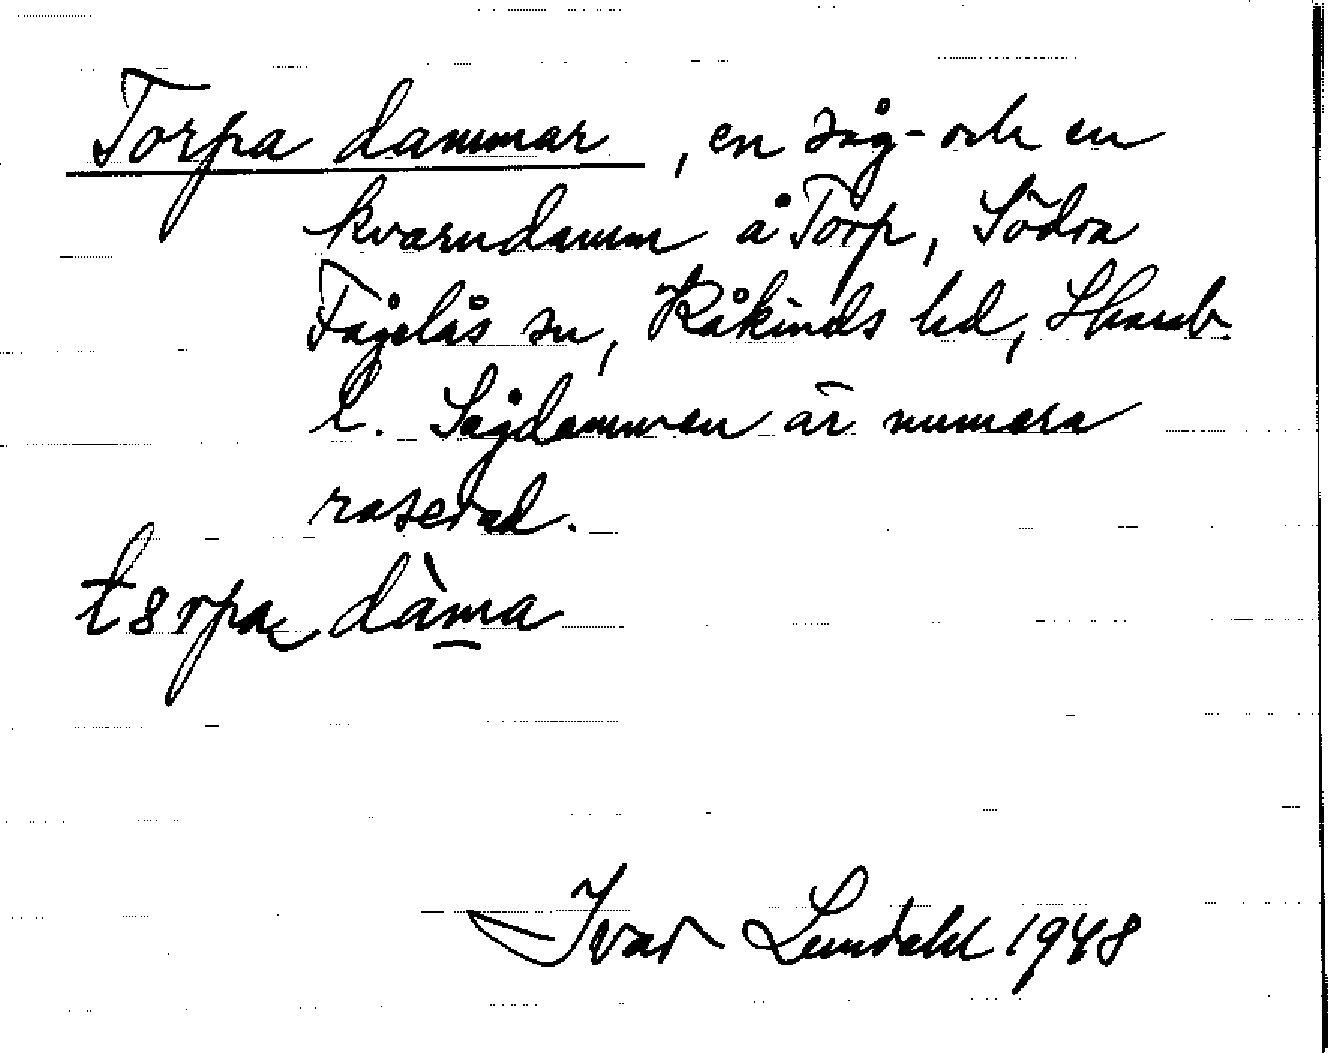 Torpa dammar, en såg- och en
kvarndamm å Torp, Södra
Fågelås sn, Kåkinds hd, Skarab.
l. Sågdammen är numera
raserad.
t8rpa dàma
Ivar Lundahl 1948